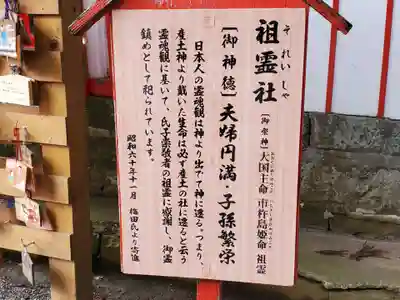 祖霊社
それいしゃ
[御祭神]大国主命 市杵島姫命 祖霊
[御神徳]夫婦円満・子孫繁栄
日本人の霊魂観は神より出でて神に還る。つまり、
産土神より戴いた生命は必ず産土の社に還ると云う
霊魂観に基いて、氏子崇敬者の祖霊に感謝し、御霊
鎮めとして祀られています。
昭和六十年十一月 梅田氏より寄進